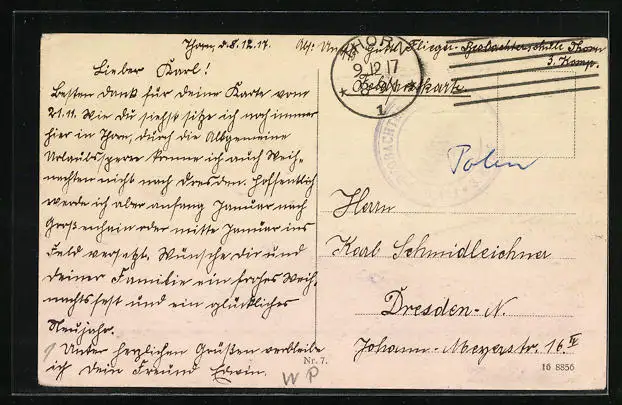 Thorn, d. 8.12.17.
Abs: Untffz. Flieger-Beobachterschule Thorn
3. Komp.
THORN
9.12.17
1
Feldpostkarte
Polen
Lieber Karl!
Besten Dank für deine Karte vom
21.11. Wie du siehst sitze ich noch immer
hier in Thorn, durch die Allgemeine
Urlaubssperre komme ich auch Weih-
nachten nicht nach Dresden. Hoffentlich
werde ich aber anfang Januar nach
Großenhain oder mitte Januar ins
Feld versetzt. Wünsche dir und
deiner Familie ein frohes Weih-
nachtsfest und ein glückliches
Neujahr.
Unter herzlichen Grüßen verbleibe
ich dein Freund Edwin.
Herrn
Karl Schmidleichner
Dresden-N.
Johann-Meyerstr. 16 IV
Nr. 7.
16 8856
W P